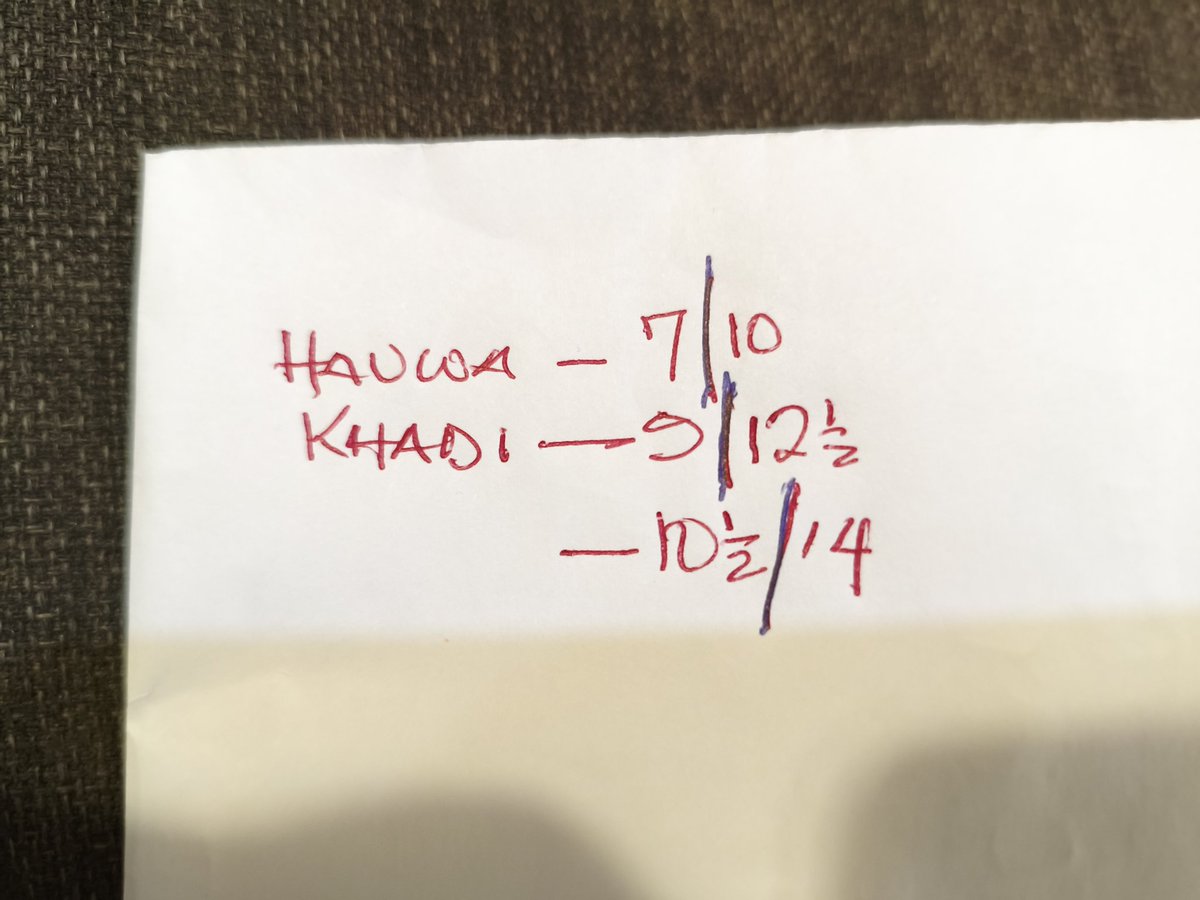 HAUWA – 7/10
KHADI — 9/12 ½
— 10 ½/14